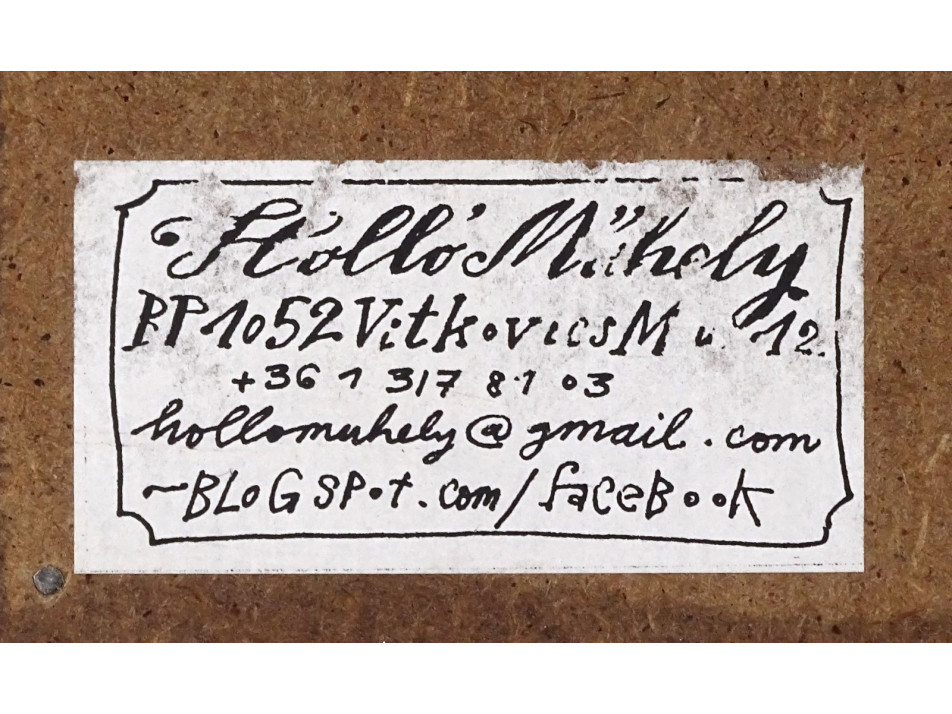 Holló Műhely
BP 1052 Vitkovics M u. 12.
+36 1 317 81 03
hollomuhely@gmail.com
~BLOGSPOT.com/faceBook